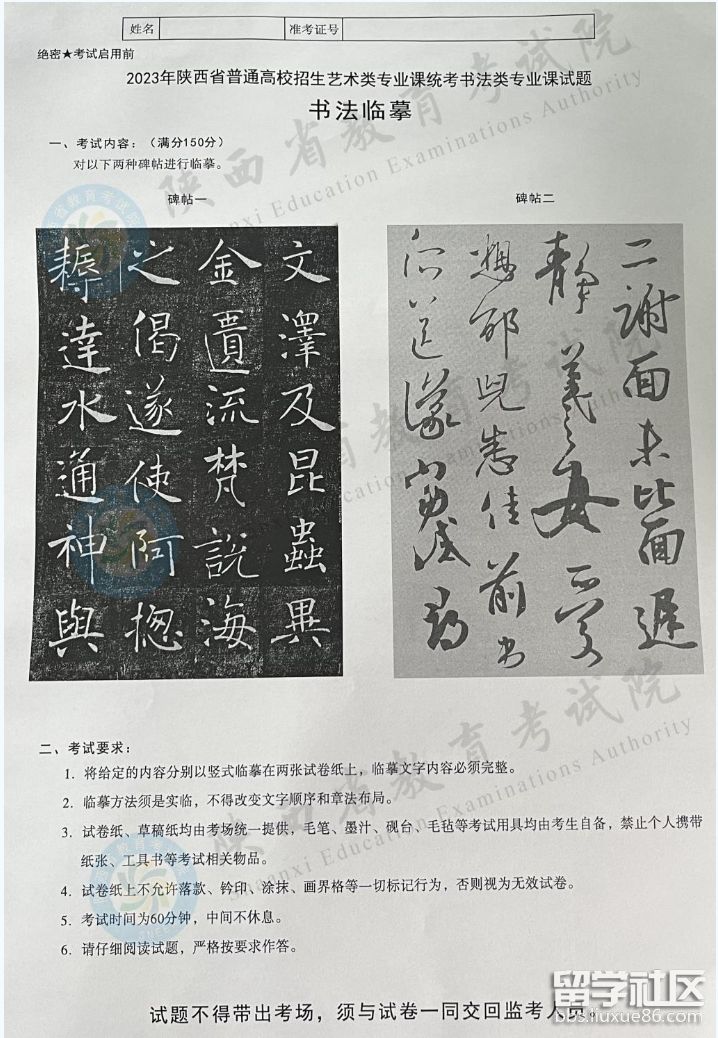 姓名 准考证号
绝密★考试启用前
2023年陕西省普通高校招生艺术类专业课统考书法类专业课试题
书法临摹
一、考试内容：（满分150分）
对以下两种碑帖进行临摹。
碑帖一
文澤及昆蟲異
金匱流梵說海
之偈遂使阿揔
耨達水通神與
碑帖二
二謝面未比面遲
靜羲之女愛
想邰兒悉佳前
所送議當試
二、考试要求：
1. 将给定的内容分别以竖式临摹在两张试卷纸上，临摹文字内容必须完整。
2. 临摹方法须是实临，不得改变文字顺序和章法布局。
3. 试卷纸、草稿纸均由考场统一提供，毛笔、墨汁、砚台、毛毡等考试用具均由考生自备，禁止个人携带
纸张、工具书等考试相关物品。
4. 试卷纸上不允许落款、钤印、涂抹、画界格等一切标记行为，否则视为无效试卷。
5. 考试时间为60分钟，中间不休息。
6. 请仔细阅读试题，严格按要求作答。
试题不得带出考场，须与试卷一同交回监考人员。
陕西省教育考试院
Shaanxi Education Examinations Authority
陕西省教育考试院
Shaanxi Education Examinations Authority
留学社区
bbs.liuxue86.com